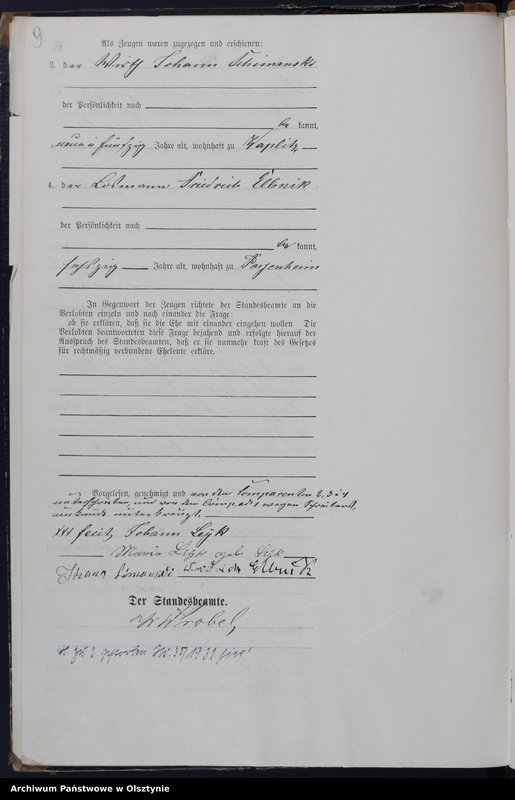 9
Als Zeugen waren zugezogen und erschienen:
3. der Wirth Johann Schimanski
der Persönlichkeit nach
be kannt,
neun u fünfzig Jahre alt, wohnhaft zu Kaplitz
4. der Losmann Friedrich Elbnik
der Persönlichkeit nach
be kannt,
sechzig Jahre alt, wohnhaft zu Passenheim
In Gegenwart der Zeugen richtete der Standesbeamte an die
Verlobten einzeln und nach einander die Frage:
ob sie erklären, daß sie die Ehe mit einander eingehen wollen. Die
Verlobten beantworteten diese Frage bejahend und erfolgte hierauf der
Ausspruch des Standesbeamten, daß er sie nunmehr kraft des Gesetzes
für rechtmäßig verbundene Eheleute erkläre.
Vorgelesen, genehmigt und von den Comparenten 2, 3 u 4
unterschrieben, und von dem Comp. ad 1 wegen Schreibens
unkunde unterkreuzt.
XXX fecit Johann Leyk
Maria Leyk geb. Leyk
Friedrich Elbnik
Der Standesbeamte.
Wrobel
Archiwum Państwowe w Olsztynie